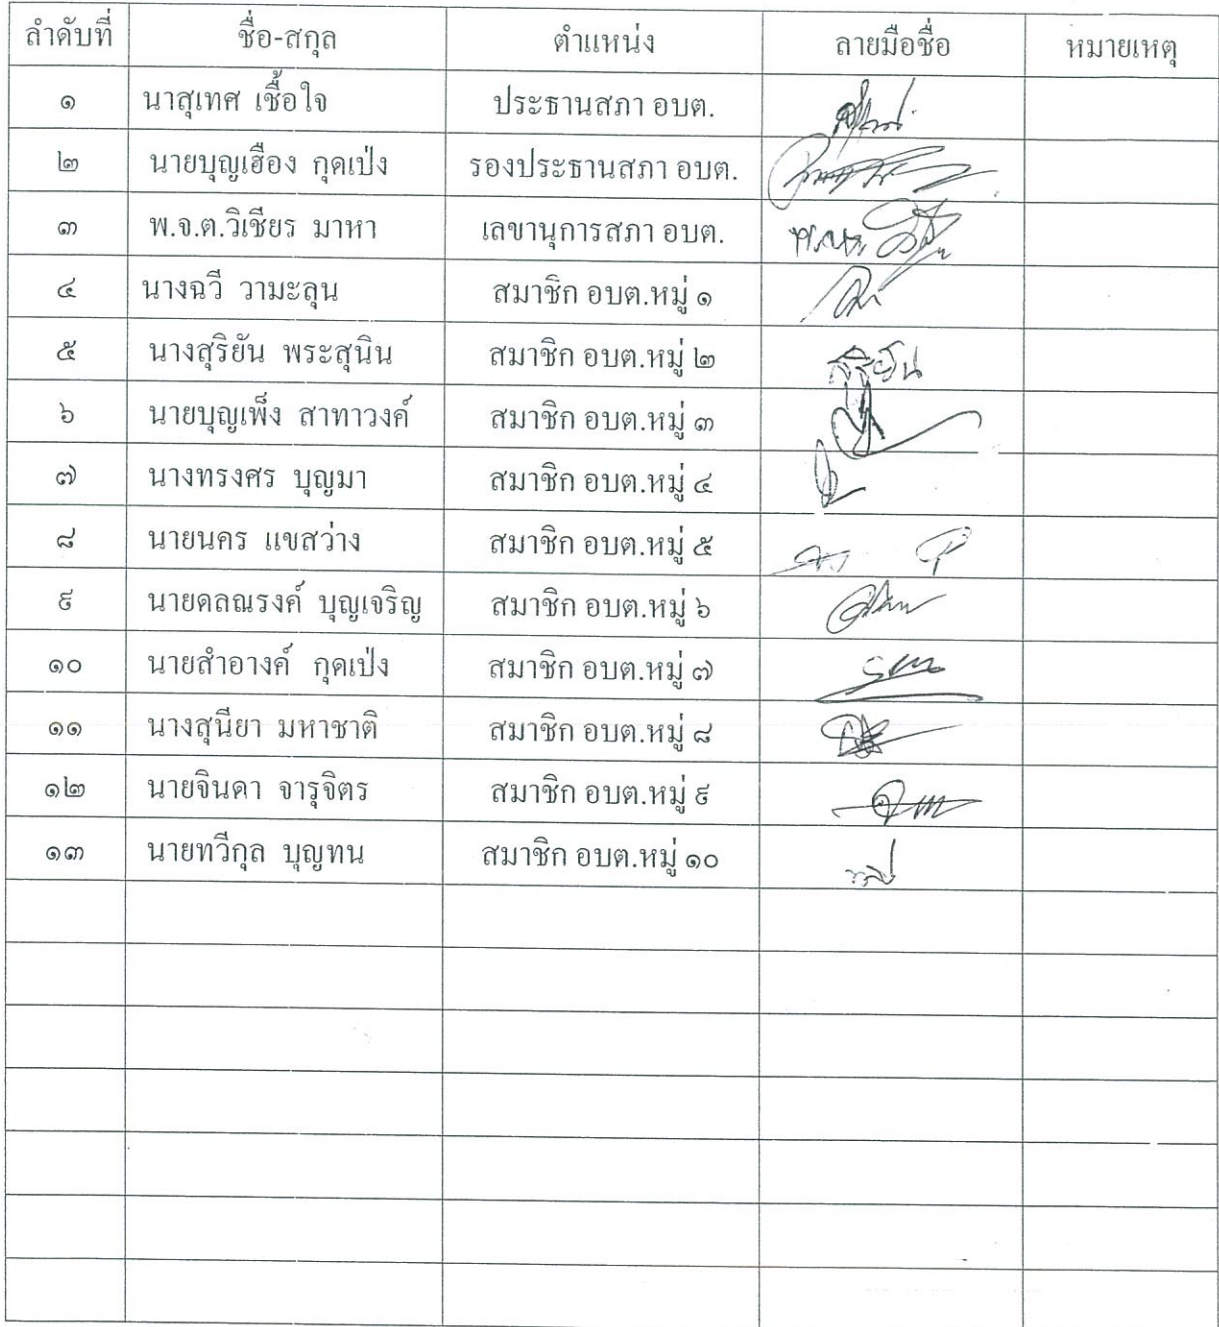 ลำดับที่ ชื่อ-สกุล ตำแหน่ง ลายมือชื่อ หมายเหตุ
๑ นาสุเทศ เชื้อใจ ประธานสภา อบต.
๒ นายบุญเฮือง กุดเป่ง รองประธานสภา อบต.
๓ พ.จ.ต.วิเชียร มาหา เลขานุการสภา อบต.
๔ นางฉวี วามะลุน สมาชิก อบต.หมู่ ๑
๕ นางสุริยัน พระสุนิน สมาชิก อบต.หมู่ ๒ สุริยัน
๖ นายบุญเพ็ง สาทาวงค์ สมาชิก อบต.หมู่ ๓
๗ นางทรงศร บุญมา สมาชิก อบต.หมู่ ๔
๘ นายนคร แขสว่าง สมาชิก อบต.หมู่ ๕
๙ นายดลณรงค์ บุญเจริญ สมาชิก อบต.หมู่ ๖
๑๐ นายสำอางค์ กุดเป่ง สมาชิก อบต.หมู่ ๗
๑๑ นางสุนียา มหาชาติ สมาชิก อบต.หมู่ ๘
๑๒ นายจินดา จารุจิตร สมาชิก อบต.หมู่ ๙
๑๓ นายทวีกุล บุญทน สมาชิก อบต.หมู่ ๑๐